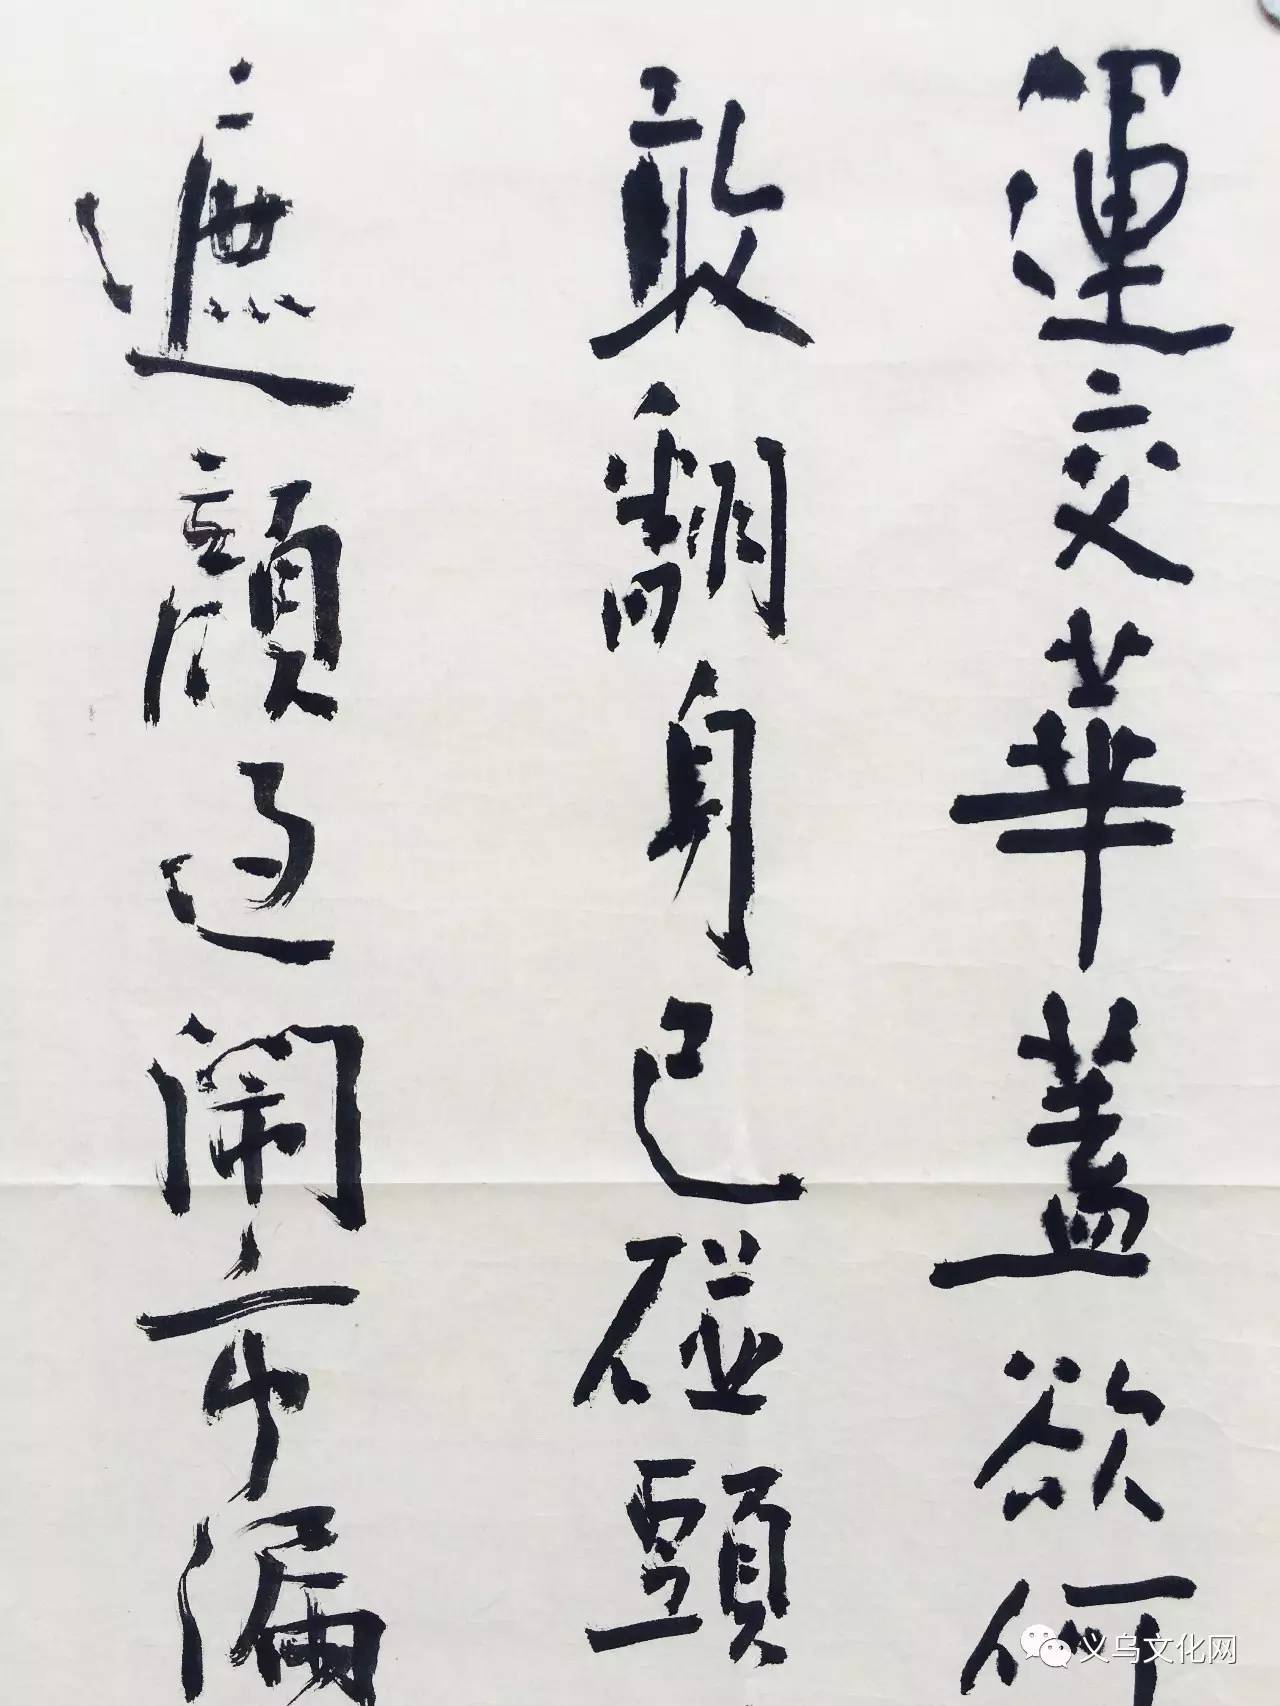 運交華蓋欲何
敢翻身已碰頭
遮顏過閙市漏
义乌文化网